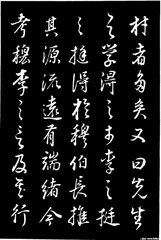 材者多矣又曰先生
之学得之於李之挺
之挺得於穆伯長推
其源流遠有端緒今
考穆李之言及其行